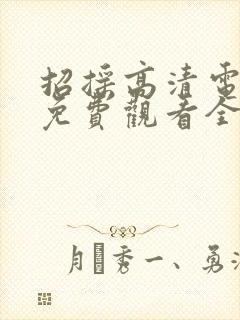 招採高清電
免費觀看全
月秀一、勇